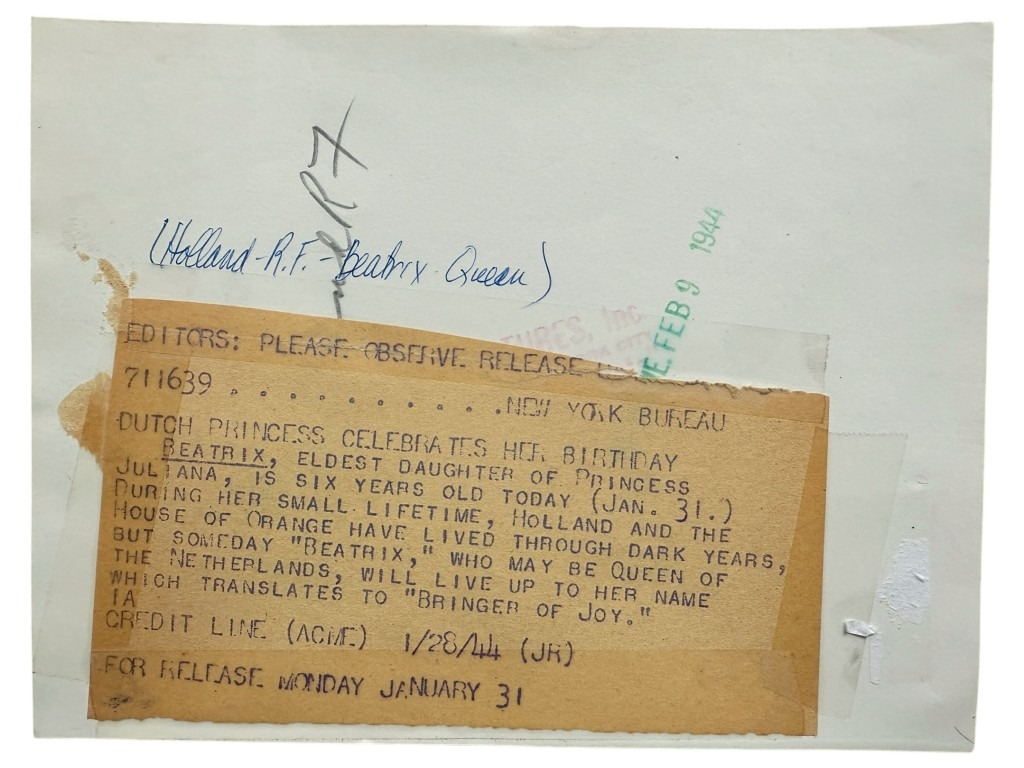 (Holland-R.F.-Beatrix Queen)
FEB 9 1944
TURES, Inc
EDITORS: PLEASE OBSERVE RELEASE
711639 . . . . . . . . . . .NEW YORK BUREAU
DUTCH PRINCESS CELEBRATES HER BIRTHDAY
BEATRIX, ELDEST DAUGHTER OF PRINCESS
JULIANA, IS SIX YEARS OLD TODAY (JAN. 31.)
DURING HER SMALL LIFETIME, HOLLAND AND THE
HOUSE OF ORANGE HAVE LIVED THROUGH DARK YEARS,
BUT SOMEDAY "BEATRIX," WHO MAY BE QUEEN OF
THE NETHERLANDS, WILL LIVE UP TO HER NAME
WHICH TRANSLATES TO "BRINGER OF JOY."
IA
CREDIT LINE (ACME) 1/28/44 (JR)
FOR RELEASE MONDAY JANUARY 31